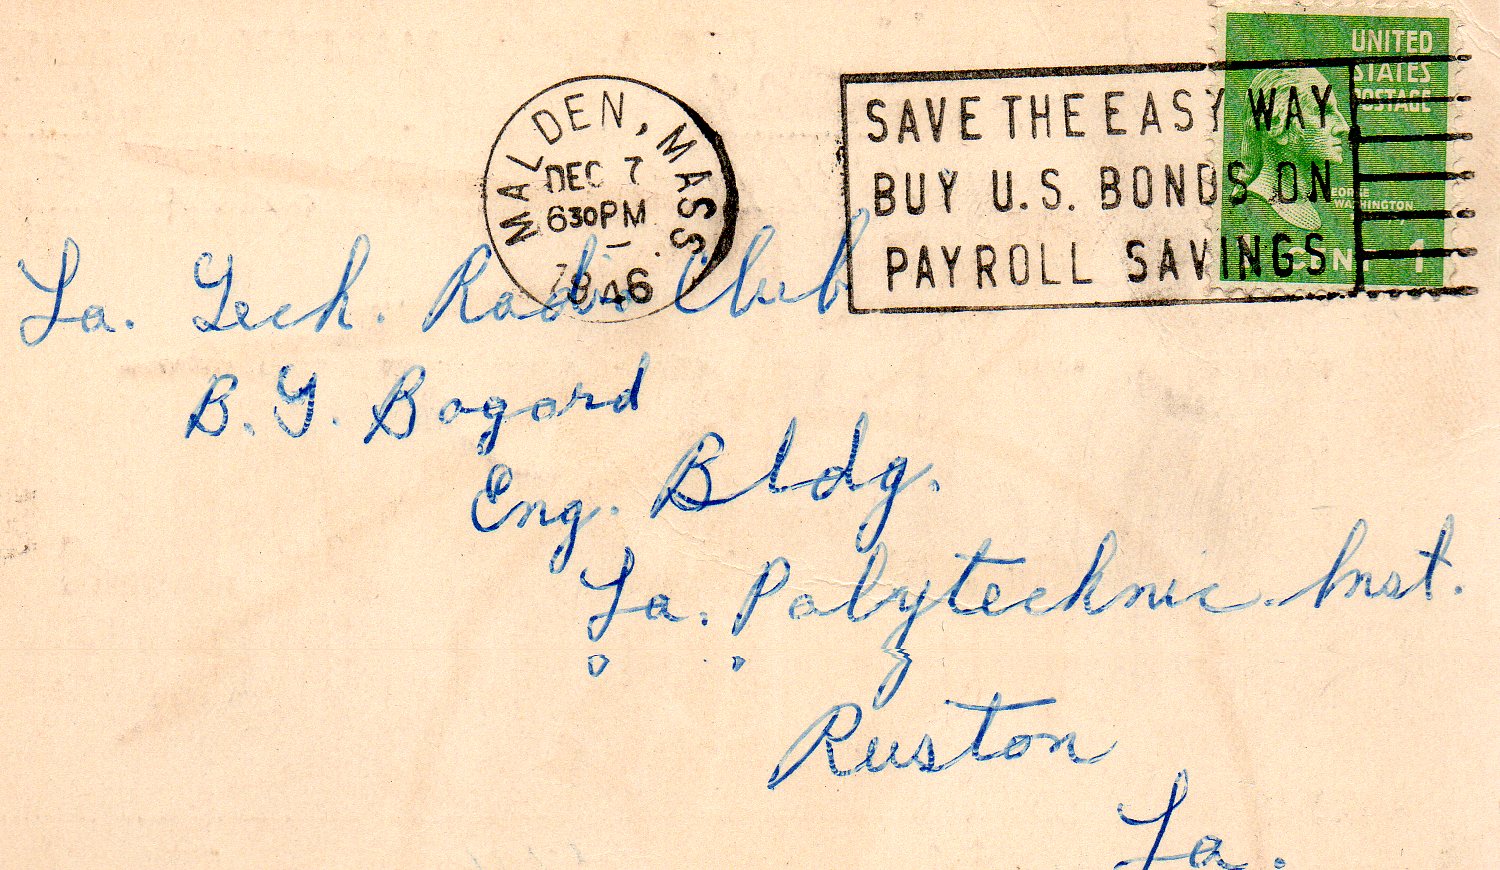 MALDEN, MASS
DEC 7
630PM
1946
SAVE THE EASY WAY
BUY U.S. BONDS ON
PAYROLL SAVINGS
UNITED
STATES
POSTAGE
GEORGE
WASHINGTON
CENT 1
La. Tech. Radio Club
B. Y. Bogard
Eng. Bldg.
La. Polytechnic Inst.
Ruston
La.